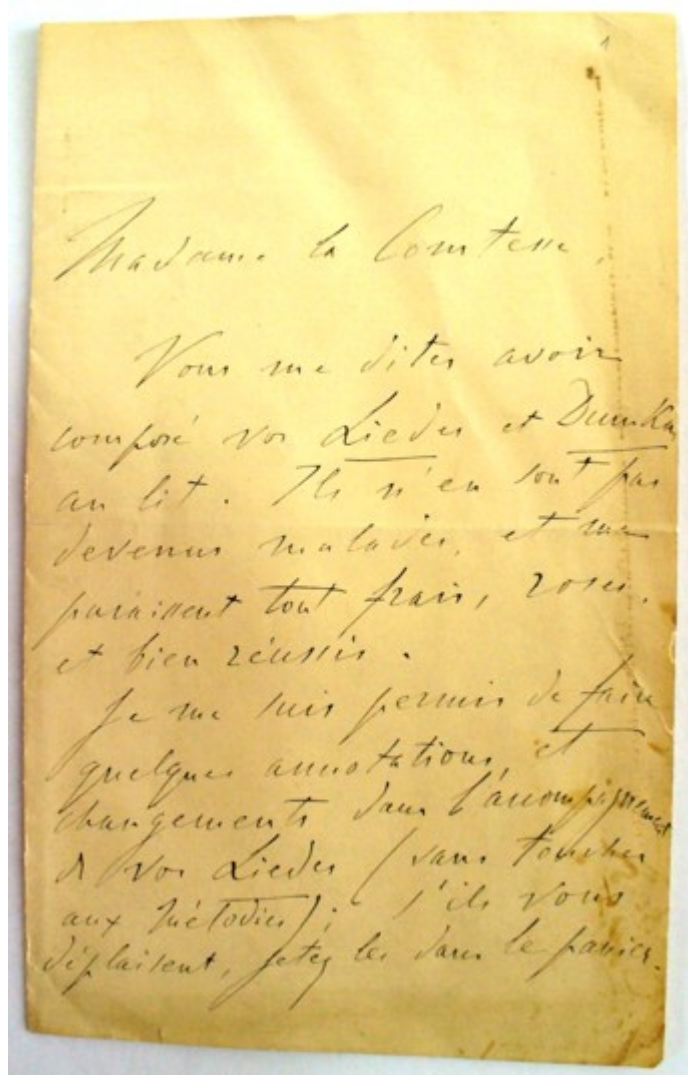 1
Madame la Comtesse,
Vous me dites avoir
composé vos Lieder et Dumka
au lit. Ils n'en sont pas
devenus malades, et me
paraissent tout frais, roses,
et bien réussis.
Je me suis permis de faire
quelques annotations, et
changements dans l'accompagnement
de vos Lieder (sans toucher
aux Mélodies); s'ils vous
déplaisent, jetez les dans le panier.